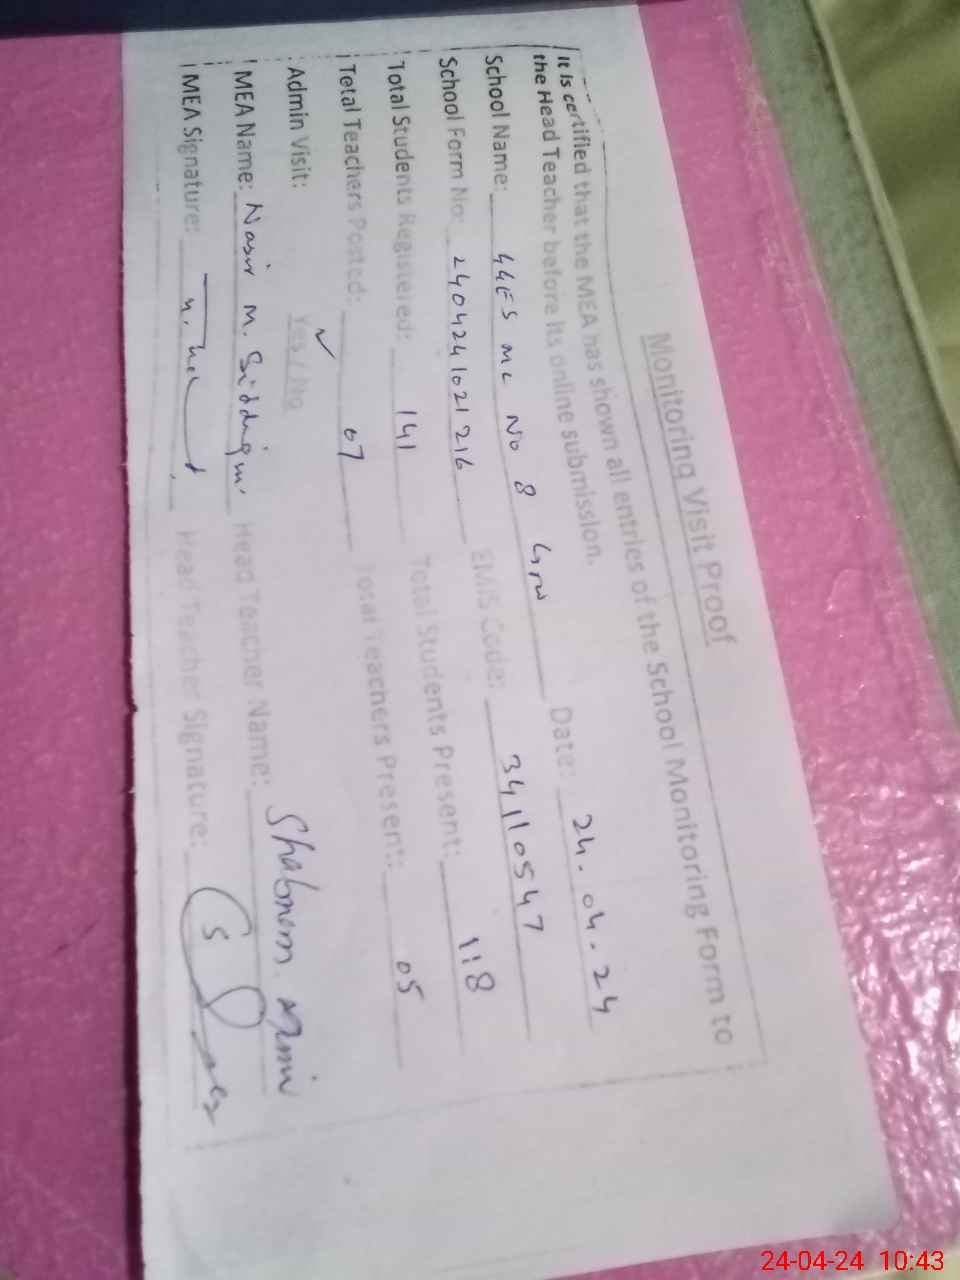 Monitoring Visit Proof
It is certified that the MEA has shown all entries of the School Monitoring Form to
the Head Teacher before its online submission.
School Name: GGES MC No 8 Grw Date: 24.04.24
School Form No: 2404241021216 EMIS Code: 34110547
Total Students Registered: 141 Total Students Present: 118
Total Teachers Posted: 07 Total Teachers Present: 05
Admin Visit: Yes / No
MEA Name: Nasir M. Head Teacher Name: Shabnem
MEA Signature: Head Teacher Signature:
24-04-24 10:43